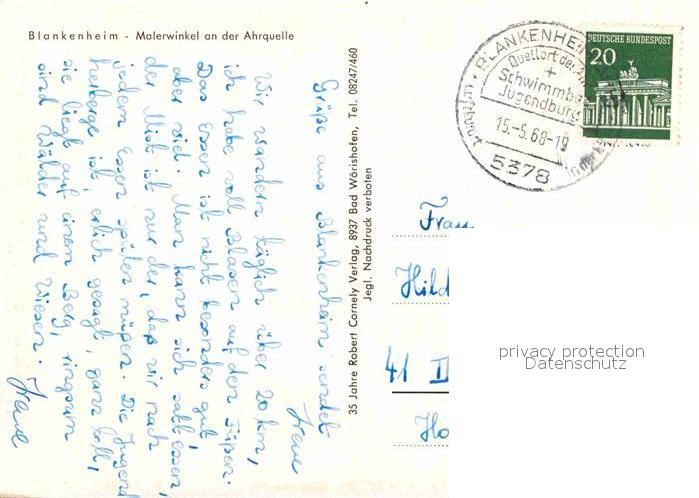 Blankenheim - Malerwinkel an der Ahrquelle
Grüße aus Blankenheim sendet
Irene
Wir wandern täglich über 20 km,
ich habe voll Blasen auf den Füßen.
Das Essen ist nicht besonders gut,
aber viel. Man kann sich satt essen,
der Mist ist nur der, daß wir nach
jedem Essen spülen müßen. Die Jugend
herberge ist, erlich gesagt, ganz toll,
sie liegt auf einem Berg, ringsum
sind Wälder und Wiesen.
35 Jahre Robert Cornely Verlag, 8937 Bad Wörishofen, Tel. 08247/460
Jegl. Nachdruck verboten
BLANKENHEIM
Quellort der Ahr
+
Schwimmbad
Jugendburg
15.-5.68-19
5378
DEUTSCHE BUNDESPOST
20
Frau
Hild
41
Ho
privacy protection
Datenschutz